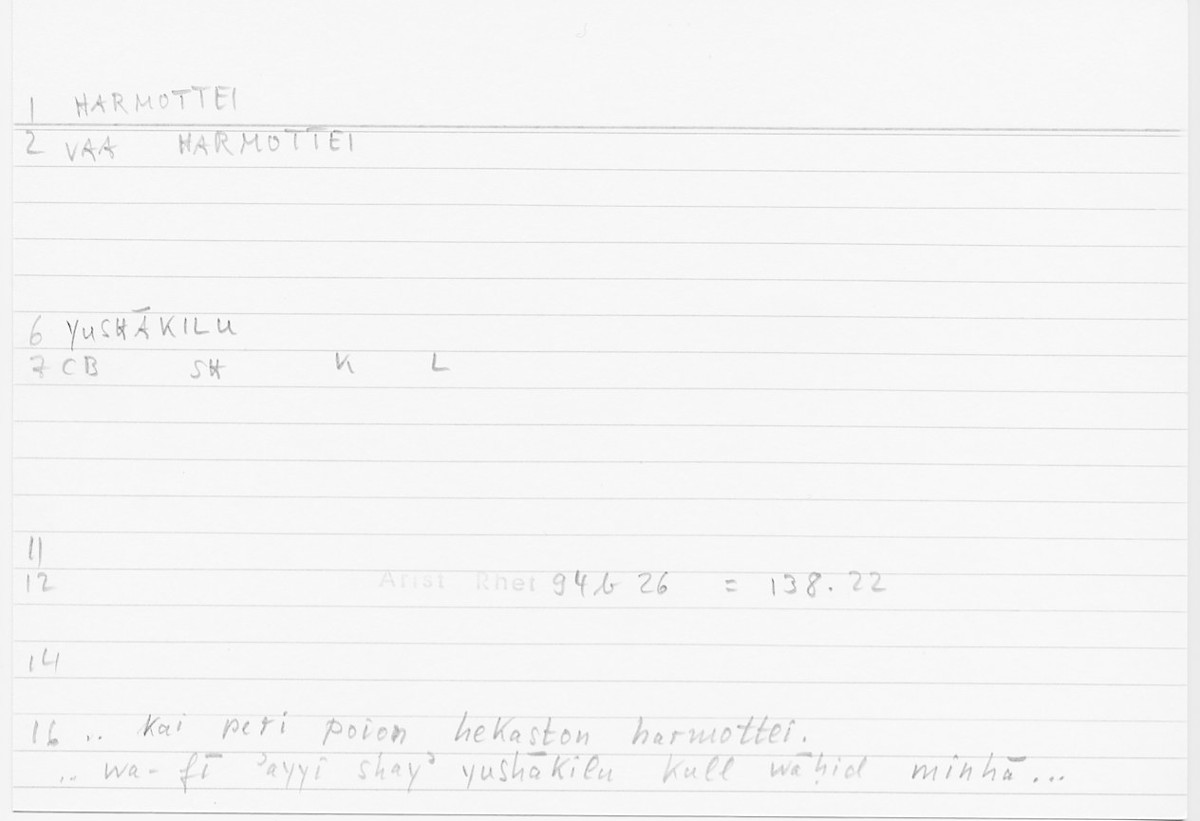 1 HARMOTTEI
2 VAA HARMOTTEI
6 YUSHĀKILU
7 CB SH K L
11
12 Arist Rhet 94b 26 = 138.22
14
16 .. kai peri poion hekaston harmottei.
.. wa- fī ʾayyi shayʾ yushākilu kull wāḥid minhā...